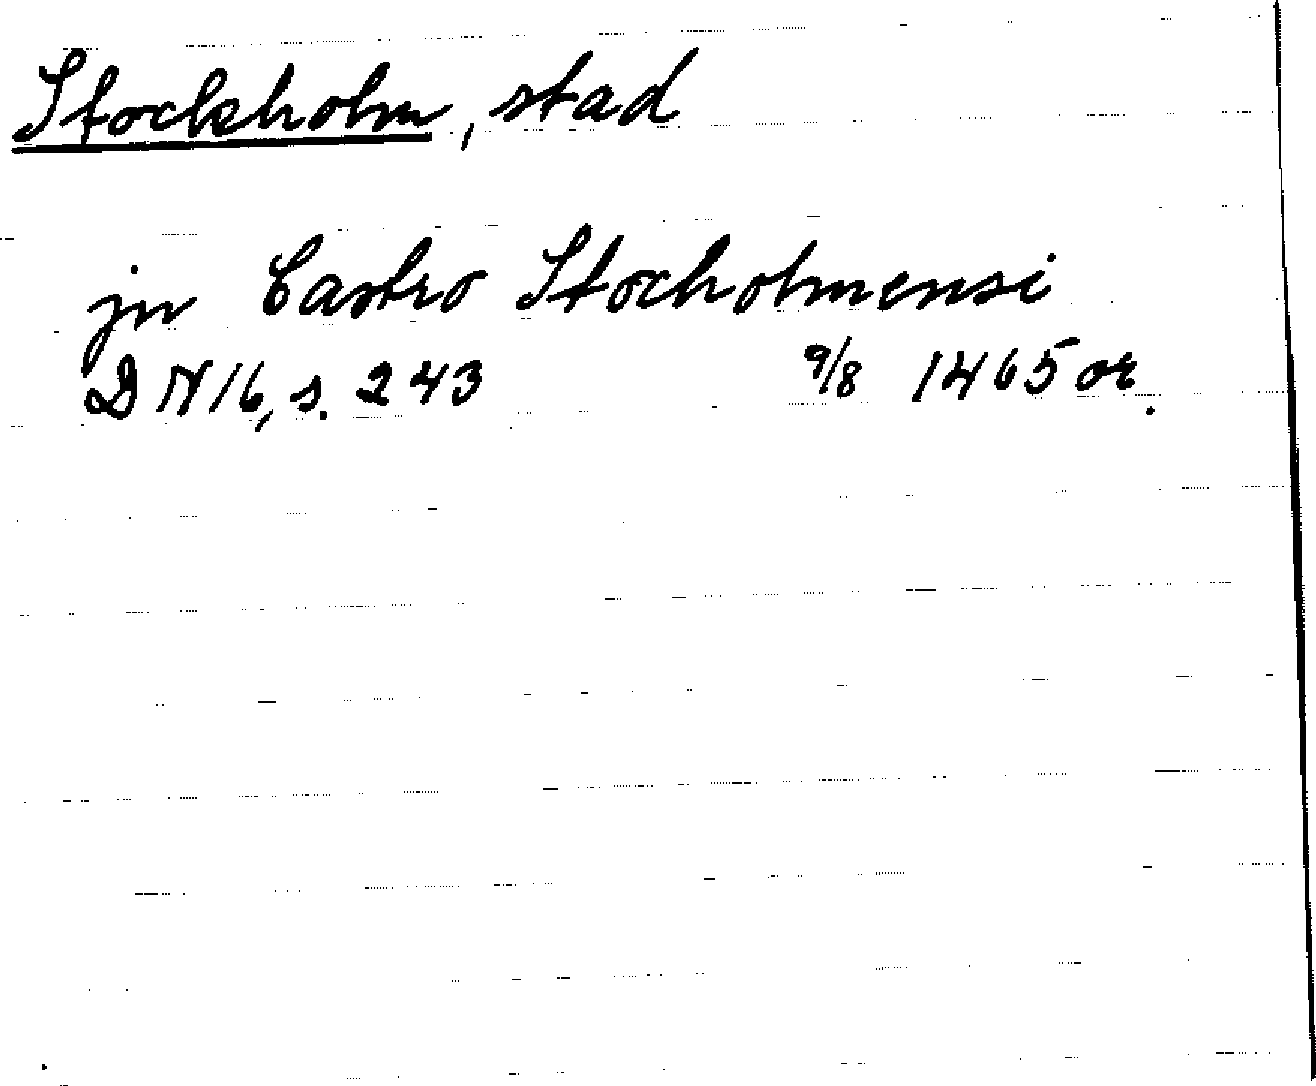 Stockholm, stad
jn Castro Stocholmensi
DN 16, s. 243 9/8 1465 or.